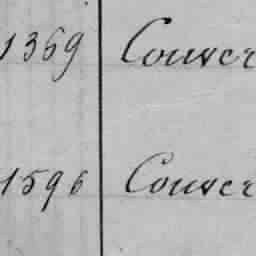 1369 Conver
1596 Conver